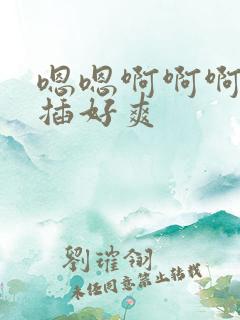 嗯嗯啊啊啊
插好爽
劉璀翎
未经同意禁止转载